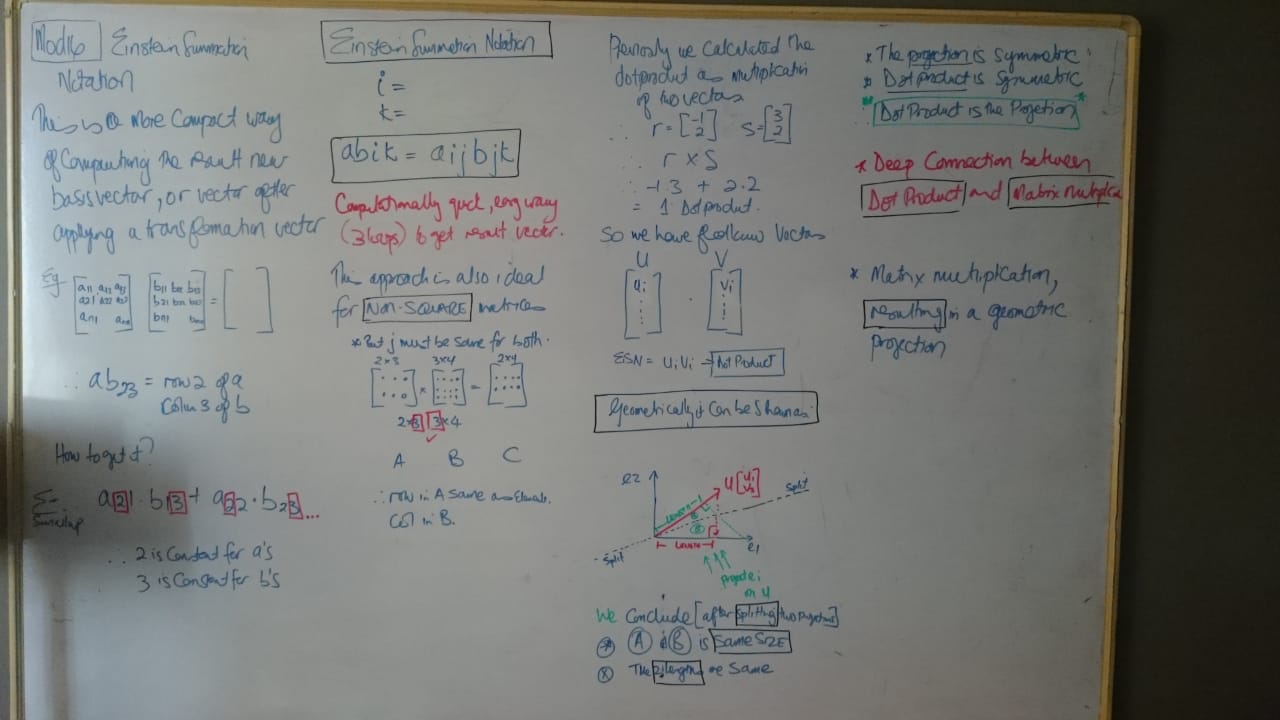 Mod16 Einstein Summation
Notation
This is a More Compact way
of Computing the result new
basis vector, or vector after
applying a transformation vector
Eg [a11 a12 a13 a21 a22 a23 an1 ann] [b11 b12 b13 b21 b22 b23 bn1 bnn] = [ ]
∴ ab23 = row 2 of a
Colm 3 of b
How to get it?
Σ a21·b13 + a22·b23...
Sum up
∴ 2 is Constant for a's
3 is Constant for b's
Einstein Summation Notation
i =
k =
abik = aijbjk
Computationally quick, easy way
(3 loops) to get result vector.
This approach is also ideal
for NON-SQUARE matrices
* But j must be same for both.
2×3 3×4 2×4
[ ] × [ ] = [ ]
2×3 3×4
✓
A B C
∴ row in A same as Elements
Col in B.
Previously we calculated the
dot product as multiplication
of two vectors
∴ r = [-1 2] s = [3 2]
∴ r × s
∴ -1.3 + 2.2
= 1 Dot product.
So we have following Vectors
U V
[ui ⋮] . [vi ⋮]
ESN = uivi → Dot Product
Geometrically it can be shown as:
e2
U [u1 u2]
Split
Length
Length
e1
Split
Project ei
on U
We Conclude [after splitting two projections]
* A & B is Same SIZE
* The 2 lengths are Same
* The projection is Symmetric
* Dot product is Symmetric
* Dot Product is the Projection *
* Deep Connection between
Dot Product and Matrix Multiplica
* Matrix multiplication,
resulting in a geometric
projection